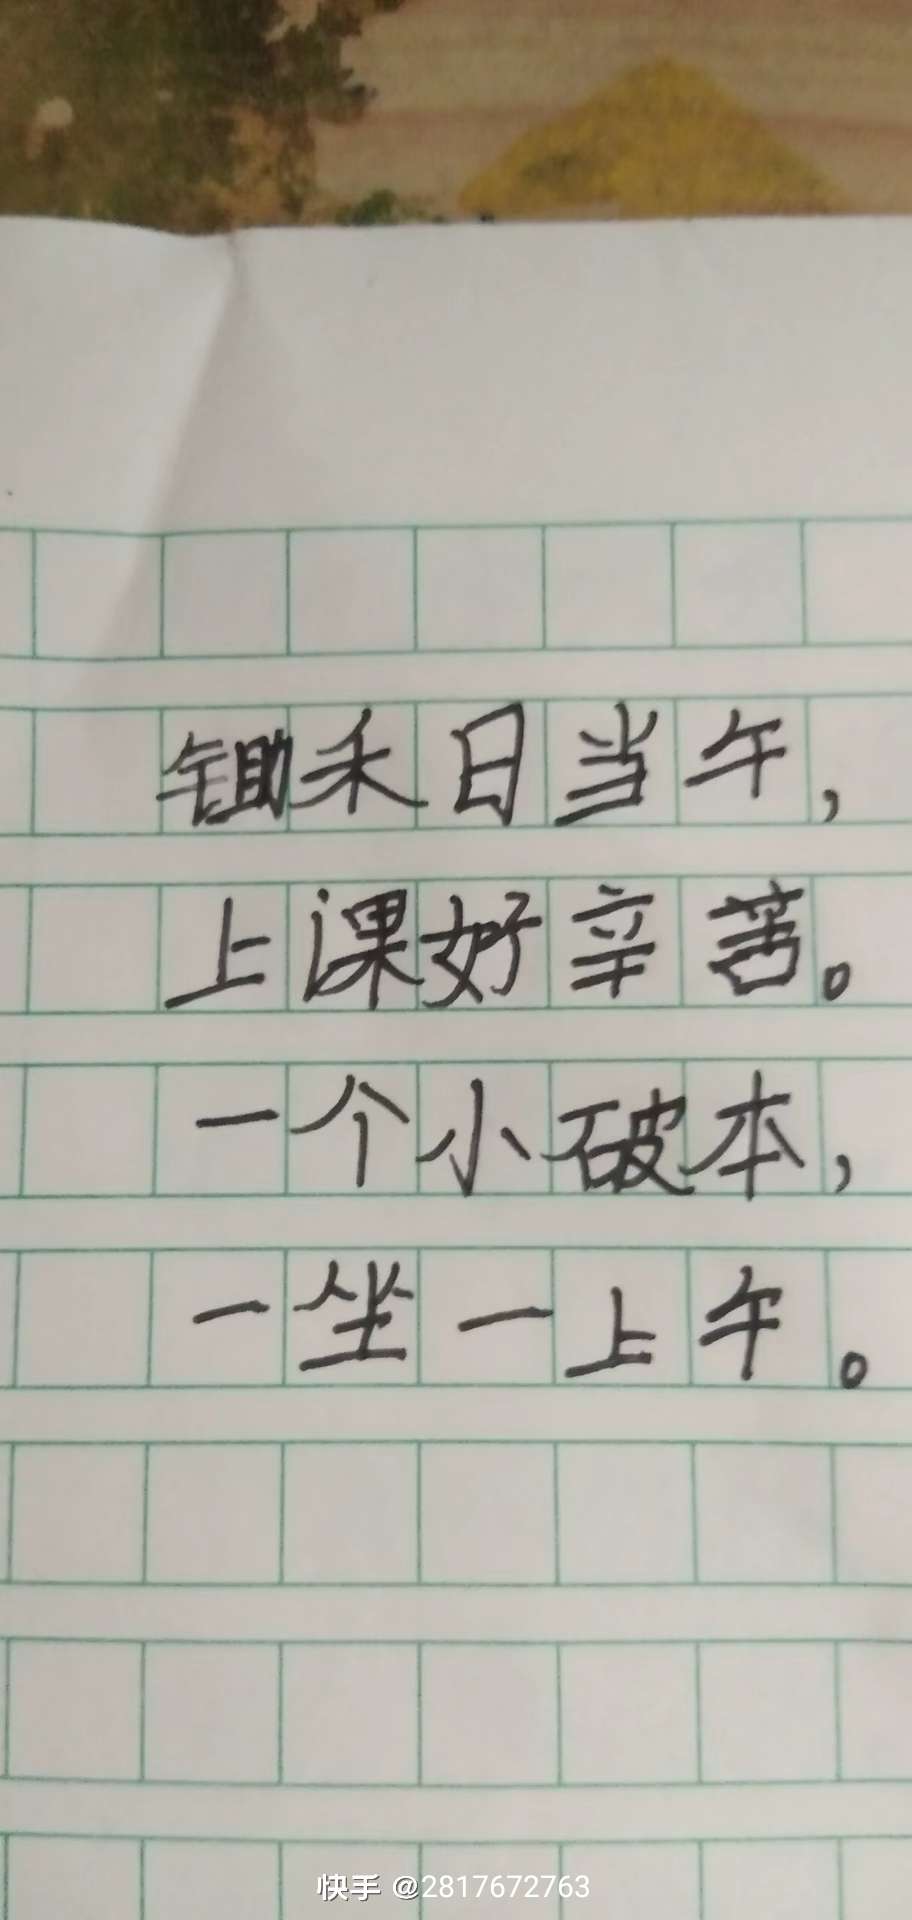 锄禾日当午，
上课好辛苦。
一个小破本，
一坐一上午。
快手 @2817672763